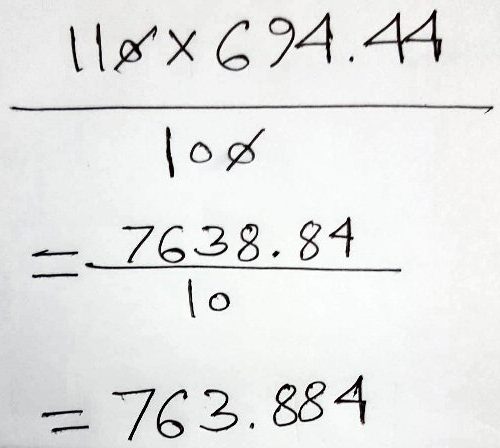 110 × 694.44
100
= 7638.84
10
= 763.884